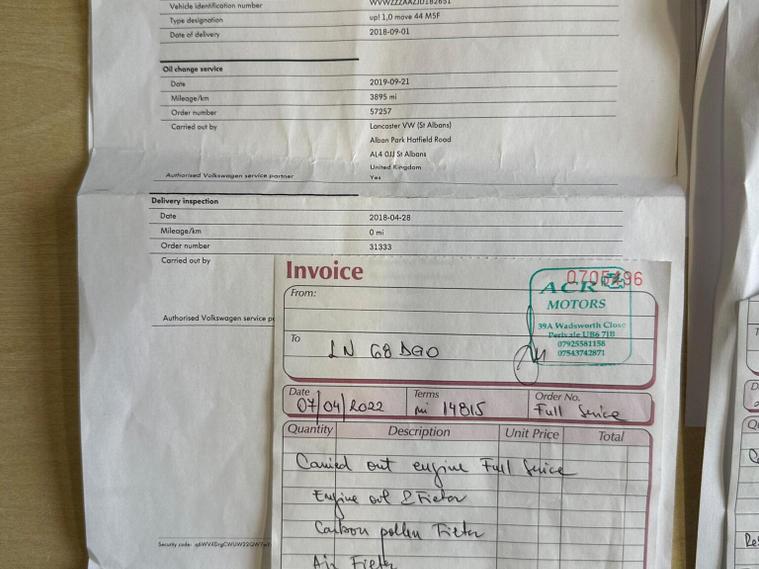 Vehicle identification number
Type designation up! 1,0 move 44 M5F
Date of delivery 2018-09-01
Oil change service
Date 2019-09-21
Mileage/km 3895 mi
Order number 57257
Carried out by Lancaster VW (St Albans)
Alban Park Hatfield Road
AL4 0JJ St Albans
United Kingdom
Authorised Volkswagen service partner Yes
Delivery inspection
Date 2018-04-28
Mileage/km 0 mi
Order number 31333
Carried out by
Authorised Volkswagen service pa
Security code:
Invoice
ACR
MOTORS
39A Wadsworth Close
Perivale UB6 7JB
07925581158
07543742871
From:
To LN 68 DGO
Date Terms Order No.
07/04/2022 mi 14815 Full Service
Quantity Description Unit Price Total
Carried out engine Full Service
Engine oil & Fieter
Carbon pollen Fieter
Air Fieter
D
Qu
Res